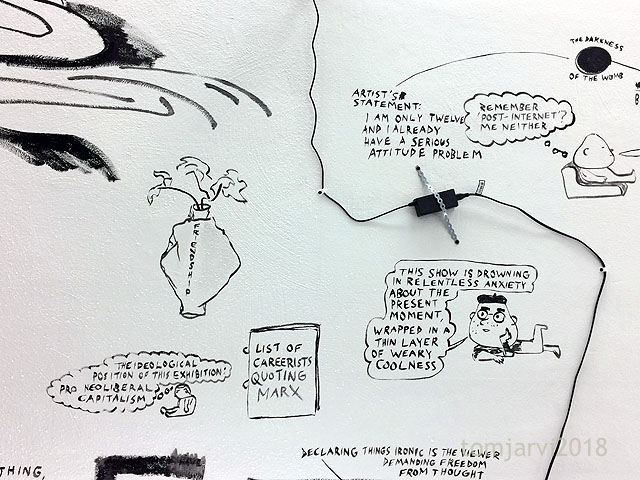 THE DARKNESS
OF THE WOMB
ARTIST'S
STATEMENT:
I AM ONLY TWELVE
AND I ALREADY
HAVE A SERIOUS
ATTITUDE PROBLEM
REMEMBER
'POST-INTERNET'?
ME NEITHER
FRIENDSHIP
THIS SHOW IS DROWNING
IN RELENTLESS ANXIETY
ABOUT THE
PRESENT
MOMENT,
WRAPPED IN A
THIN LAYER
OF WEARY
COOLNESS
LIST OF
CAREERISTS
QUOTING
MARX
THE IDEOLOGICAL
POSITION OF THIS EXHIBITION:
PRO NEOLIBERAL
CAPITALISM
THING,
DECLARING THINGS IRONIC IS THE VIEWER
DEMANDING FREEDOM
FROM THOUGHT
tomjarvi2018